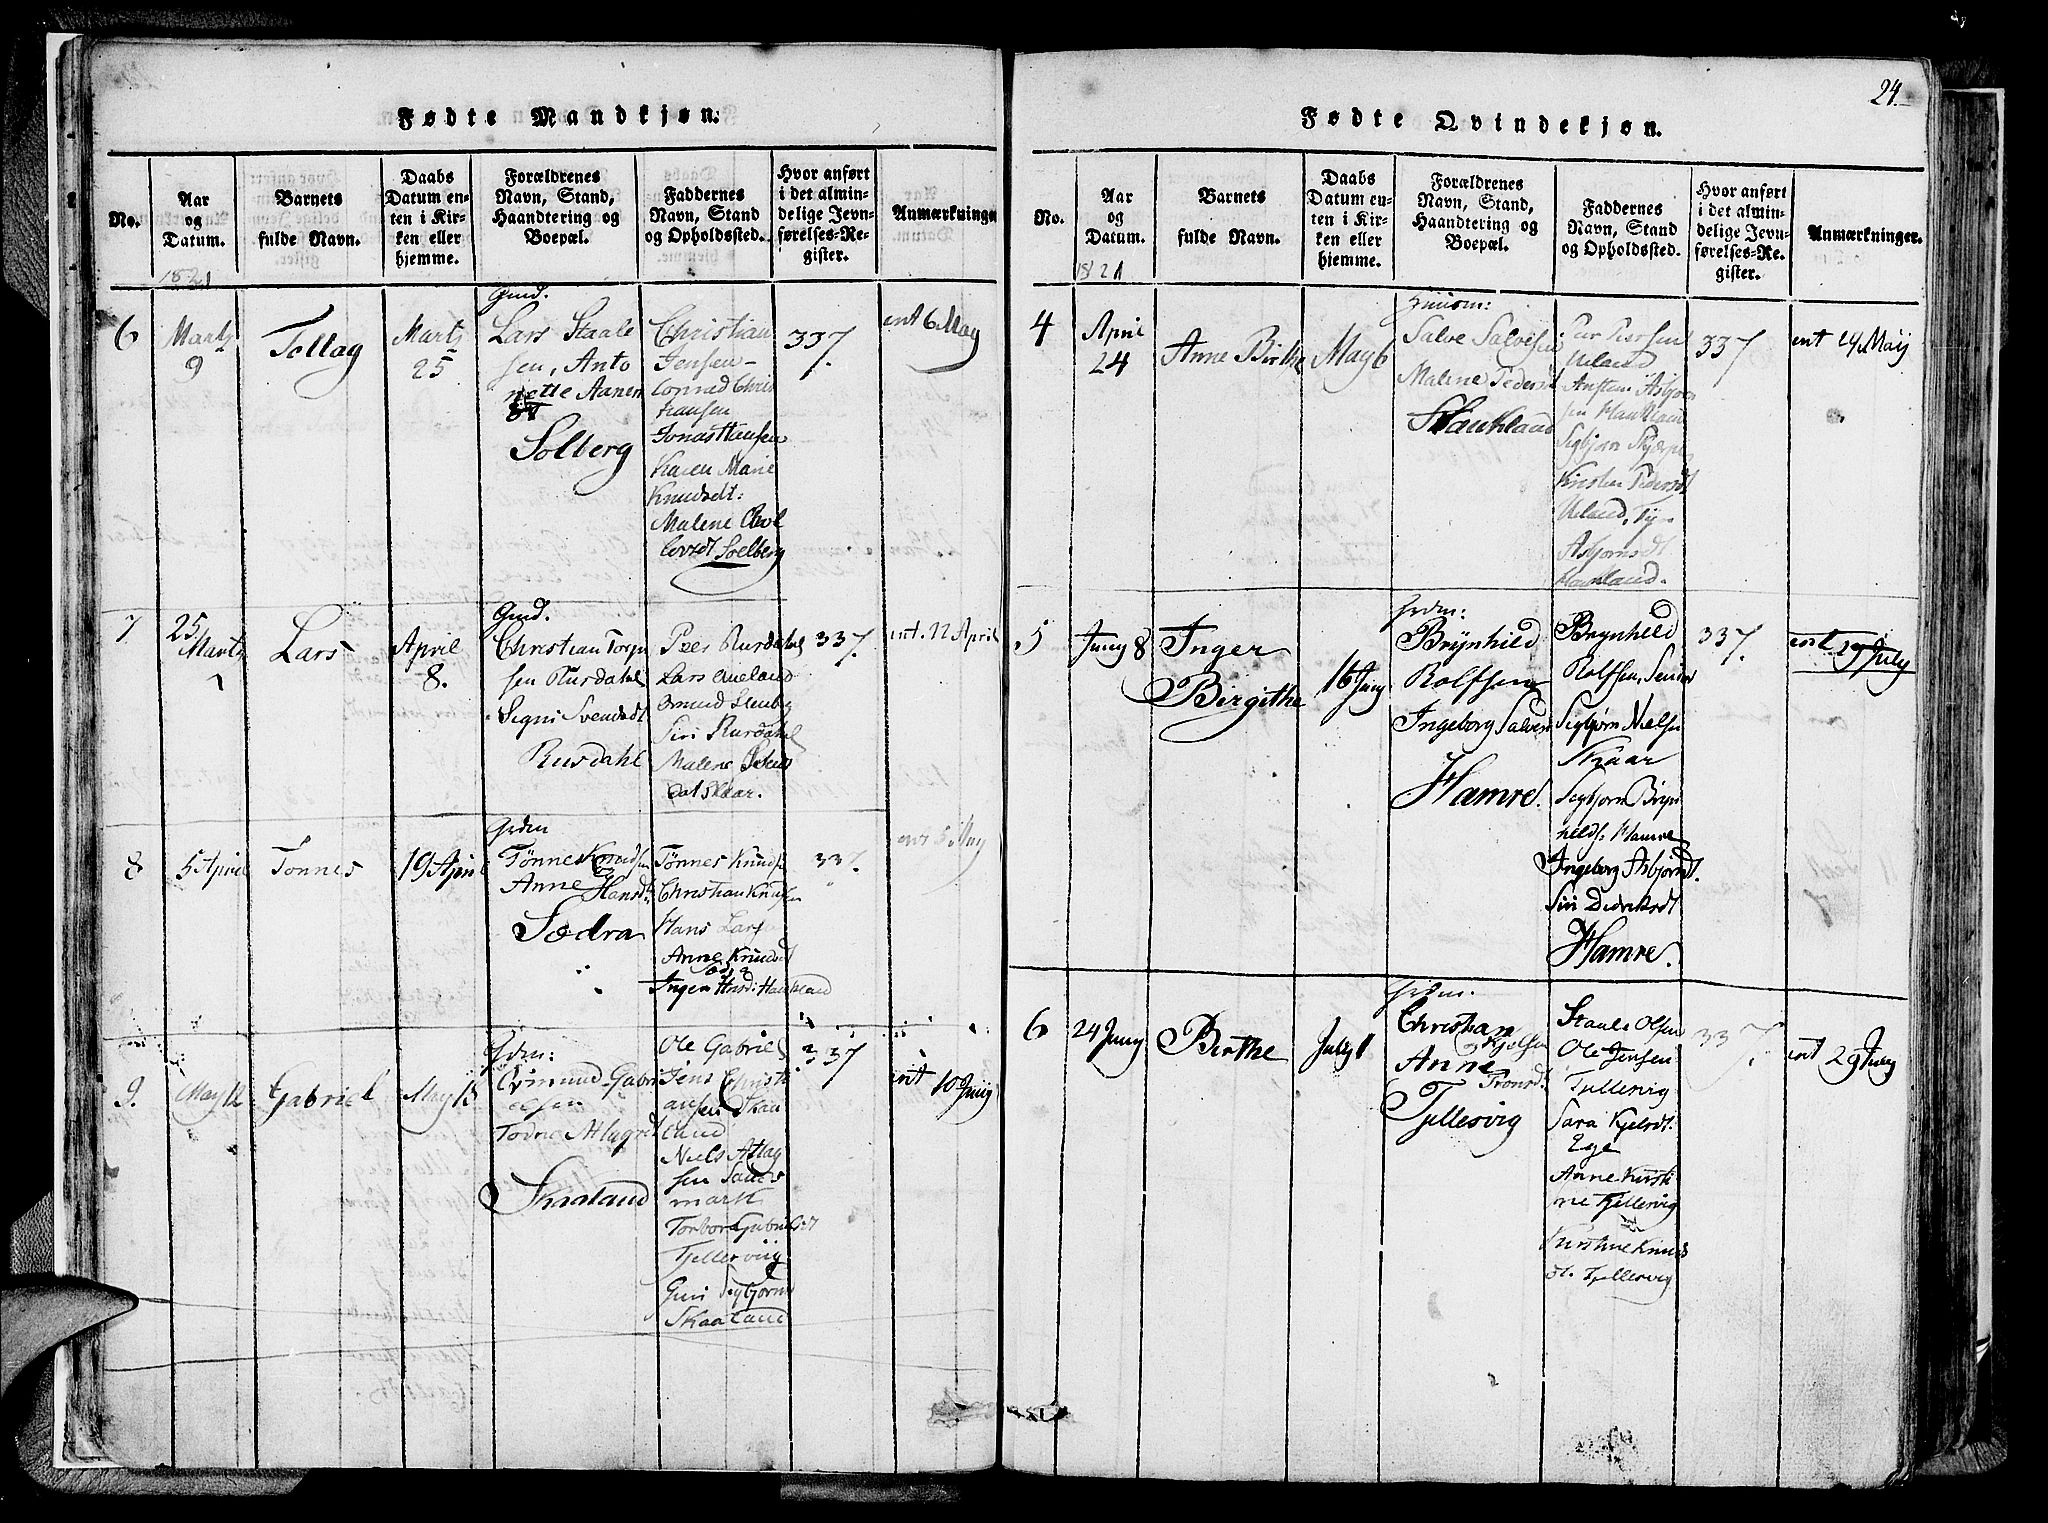 24.
Fødte Mandkjøn.
No.
Aar
og
Datum.
Barnets
fulde Navn.
Daabs
Datum en-
ten i Kir-
ken eller
hjemme.
Forældrenes
Navn, Stand,
Haandtering og
Boepæl.
Faddernes
Navn, Stand
og Opholdssted.
Hvor anført
i det almin-
delige Jevn-
førelses-Re-
gister.
Anmærkninger
1821
6
Marts
9
Tollag
Marts
25
Gmd.
Lars Staale
sen, Anto
nette Aanen
dt
Solberg
Christian
Jensen
Conrad Chris
tiansen
Jonas Hansen
Karen Marie
Knudsdt:
Malene
Soelberg
337.
int 6 May
7
25
Marts
Lars
April
8.
Gmd.
Christian Torp
sen Rusdahl
Segni Svendsdt
Rusdahl
Peer Rusdahl
Lars Aneland
Omund Stenb
Siri Rusdahl
Malene
dat Skaar.
337.
int. 22 April
8
5 April
Tonnes
19 April
Grdm
Tønnes Knudsen
Anne Hansdt
Sædra
Tønnes Knuds
Christian Knudsen
Hans Lars
Anne Knudsdt
Inger Hansd: Haukland
337.
int 6 May
9.
May 12
Gabriel
May 13
Grdm:
Omund Gabri
elsen
Todne Atlagsd
Skaaland
Ole Gabriel
Jens Christi
ansen Skaa
land
Niels Atlag
sen Sands
mark
Torbor Gabrielsd
Tjellesviig
Guri Segbjørns
Skaaland
337
int 10 Juny
Fødte Qvindekjøn.
No.
Aar
og
Datum.
Barnets
fulde Navn.
Daabs
Datum en-
ten i Kir-
ken eller
hjemme.
Forældrenes
Navn, Stand,
Haandtering og
Boepæl.
Faddernes
Navn, Stand
og Opholdssted.
Hvor anført
i det almin-
delige Jevn-
førelses-Re-
gister.
Anmærkninger.
1821
4
April
24
Anne Birthe
May 6
Huusm:
Salve Salvesen
Malene Pedersd
Haukland
Peer Peersen
Ueland
Ansten Asbjørn
sen Haukland
Segbjørn Skjærpe
Kirsten Pedersdt
Ueland,
Asbjørnsdt
Haukland.
337.
int 24 Maij
5
Juny 8
Inger
Birgithe
16 Juny
Grdm:
Brÿnhild
Rolfsen
Ingeborg Salves
Hamre.
Brynhild
Rolfsen, Senior
Segbjørn Nielsen
Skaar
Segbjørn Bryn
hilds: Hamre
Ingeborg Asbjørnsdt.
Siri Didriksdt
Hamre.
337.
int 29 July
6
24 Juny
Birthe
July 1
Grdm.
Christian
Kjelsen
Anne
Tronsdt
Tjellesvig
Staale Olsen
Ole Jensen
Tjellesvig
Sara Kjelsdt.
Ege
Anne Kirsti
ne Tjellesvig
Kirstine Knuds
dt. Tjellesvig
337.
int 29 July